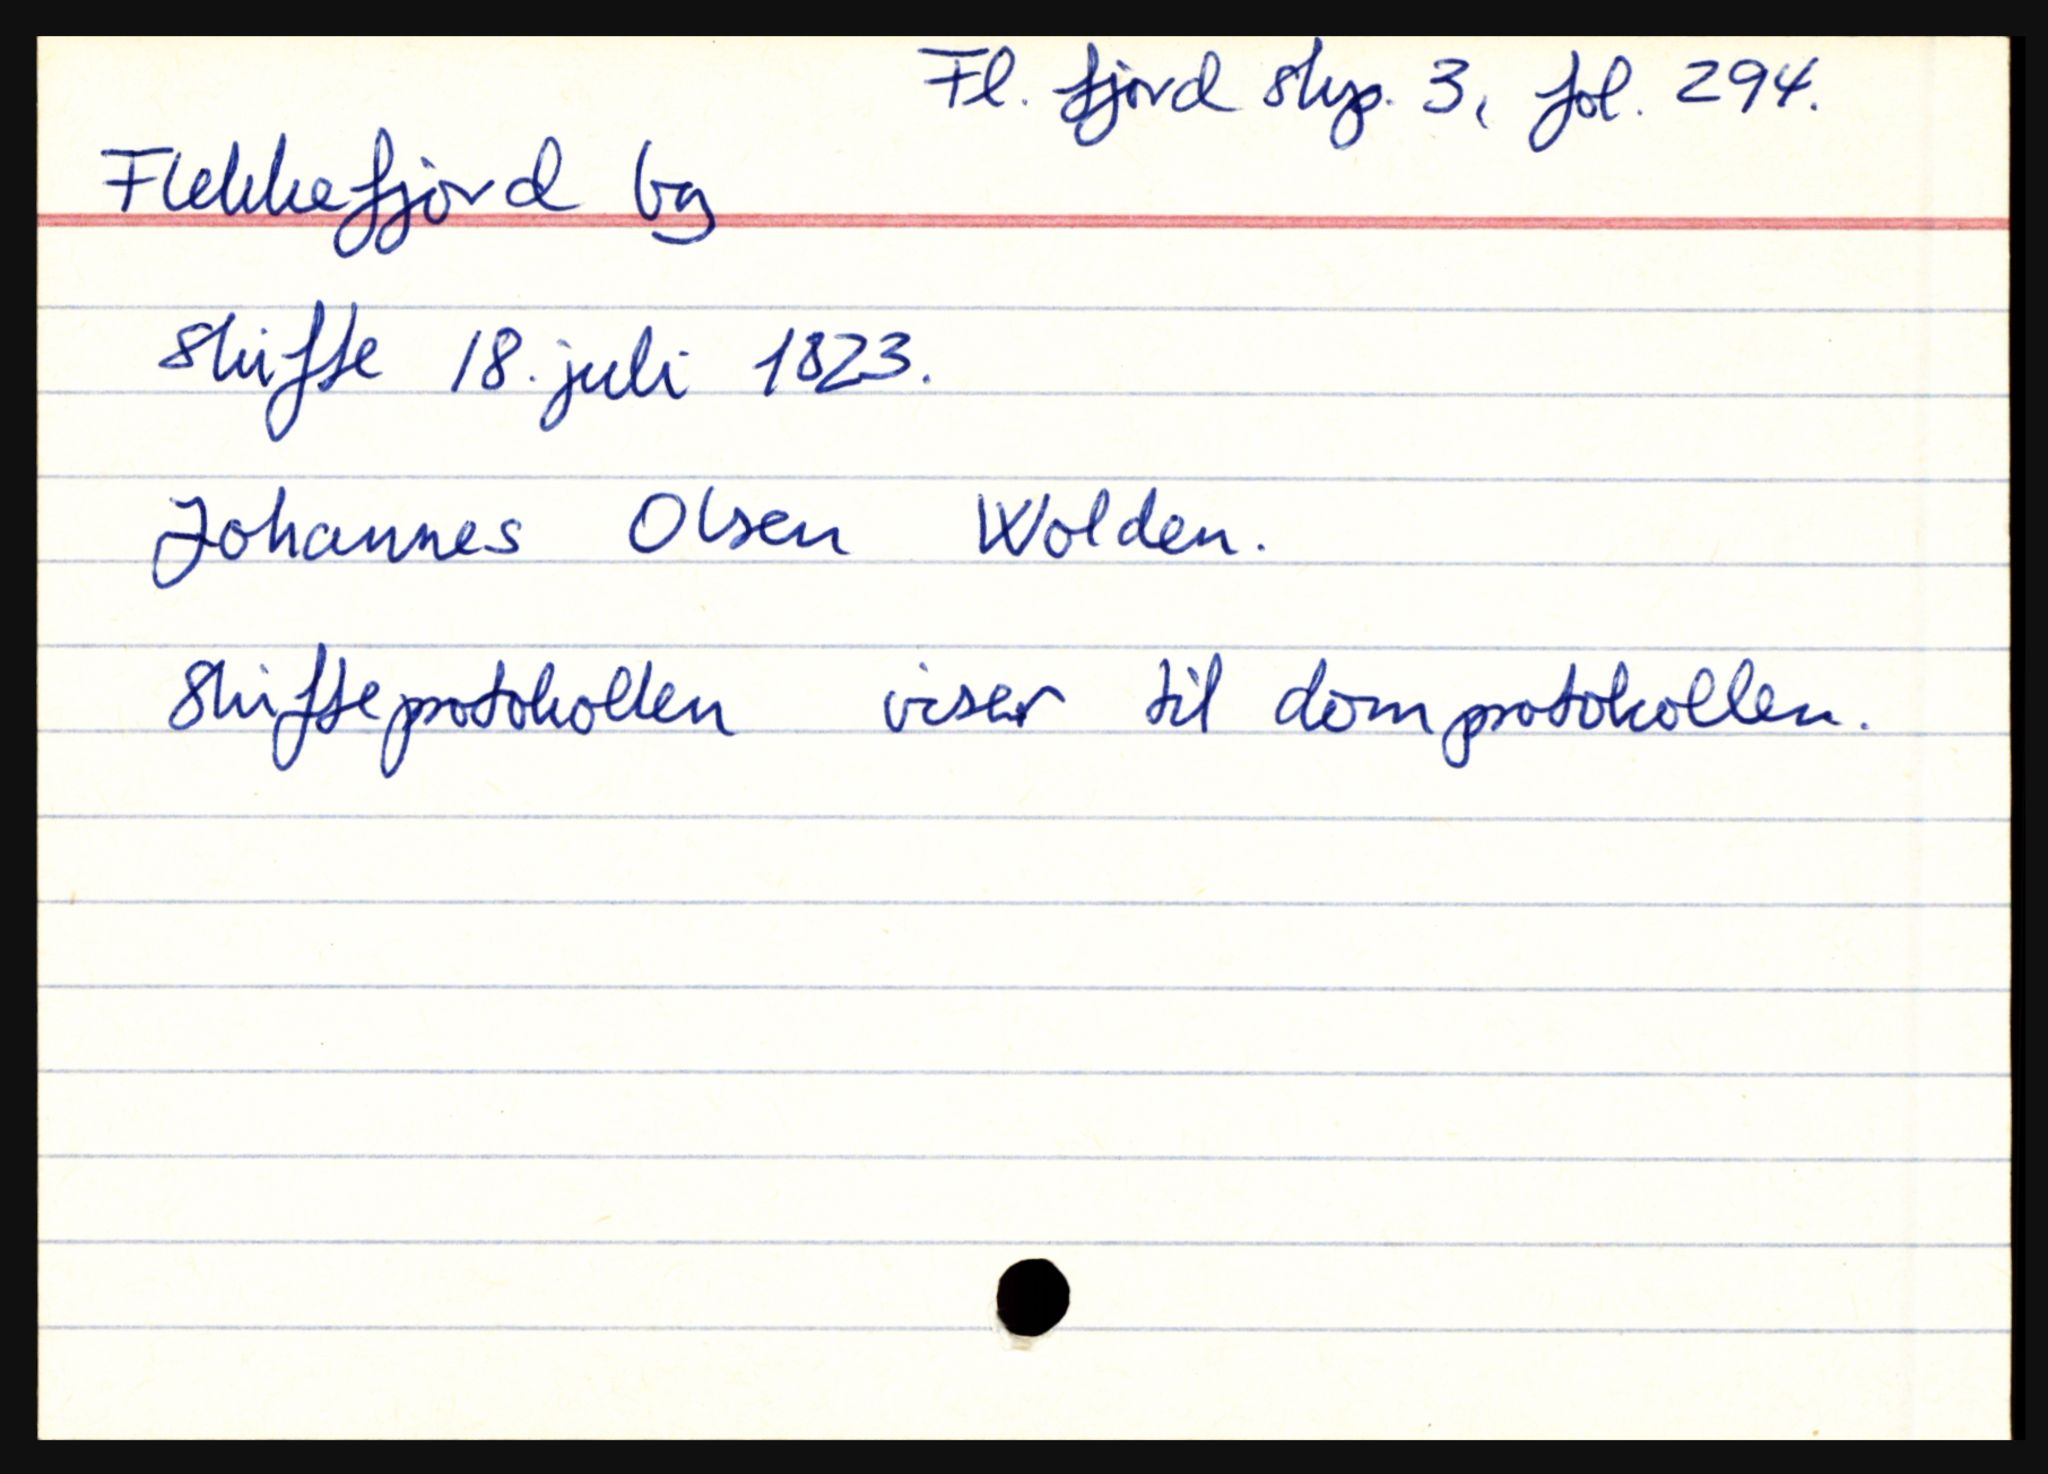 Fl. fjord skp. 3, fol. 294.
Flekkefjord by
Skifte 18. juli 1823.
Johannes Olsen Wolden.
Skifteprotokollen viser til domprotokollen.